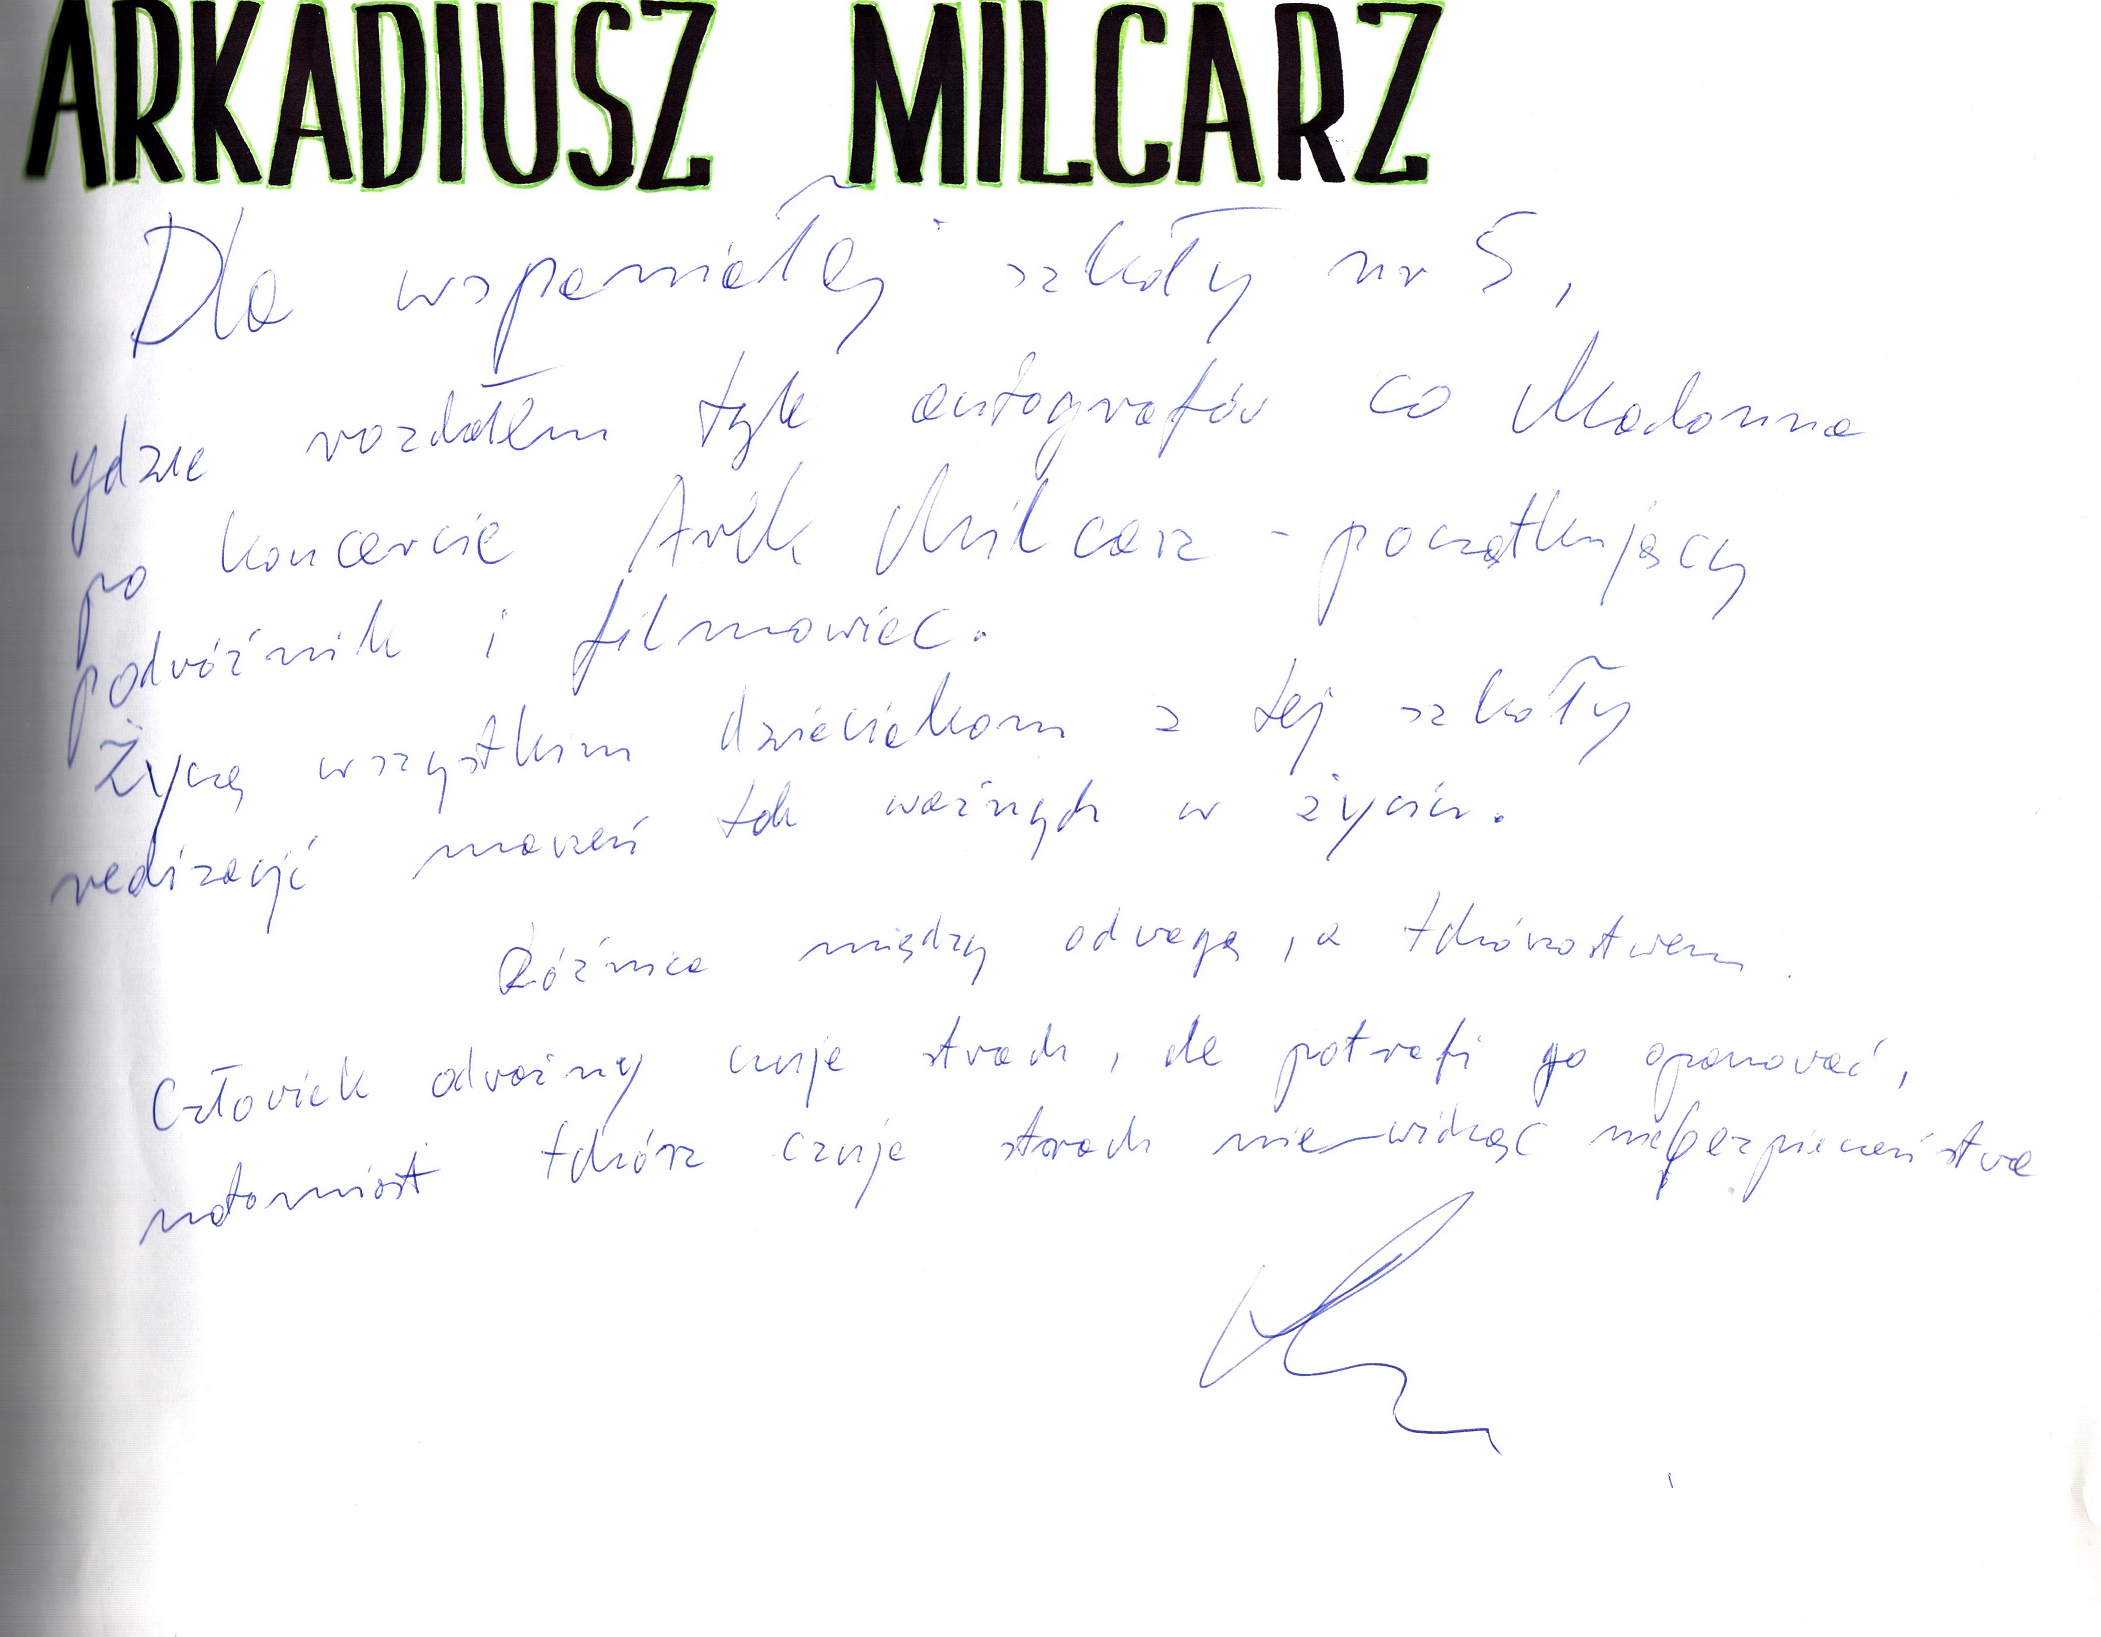 ARKADIUSZ MILCARZ
Dla wspaniałej szkoły nr 5,
gdzie rozdałem tyle autografów co Madonna
po koncercie Arek Milcarz - początkujący
podróżnik i filmowiec.
Życzę wszystkim dzieciakom z tej szkoły
realizacji marzeń tak ważnych w życiu.
Różnica między odwagą, a tchórzostwem.
Człowiek odważny czuje strach, ale potrafi go opanować,
natomiast tchórz czuje strach nie widząc niebezpieczeństwa